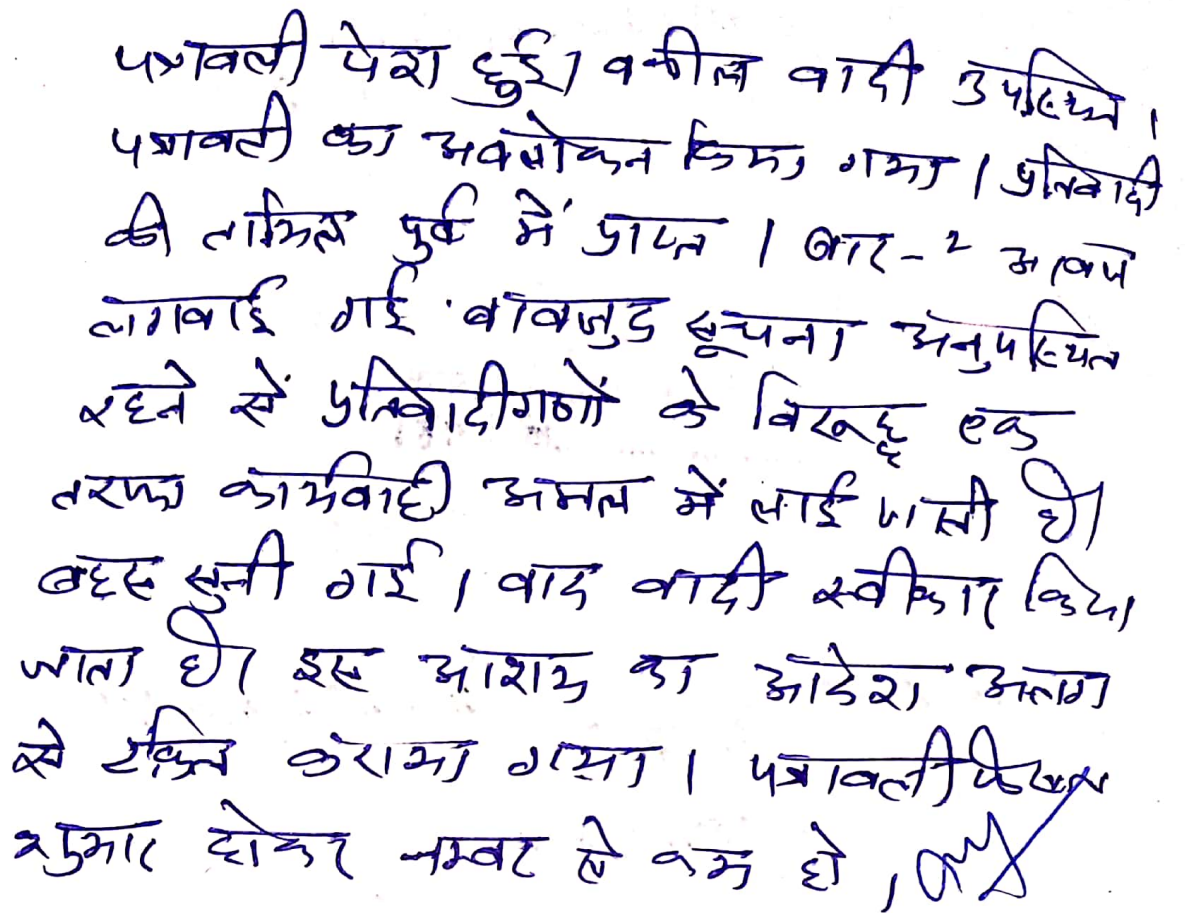 पत्रावली पेश हुई। वकील वादी उपस्थित।
पत्रावली का अवलोकन किया गया। प्रतिवादी
की तामिल पुर्व में प्राप्त। बार-2 आवाज
लगवाई गई बावजुद सूचना अनुपस्थित
रहने सें प्रतिवादीगणों के विरूद्ध एक
तरफा कार्यवाही अमल में लाई जाती है।
बहस सुनी गई। वाद वादी स्वीकार किया
जाता है। इस आशय का आदेश अलग
से टंकित कराया गया। पत्रावली फैसल
शुमार होकर नम्बर से कम हो।